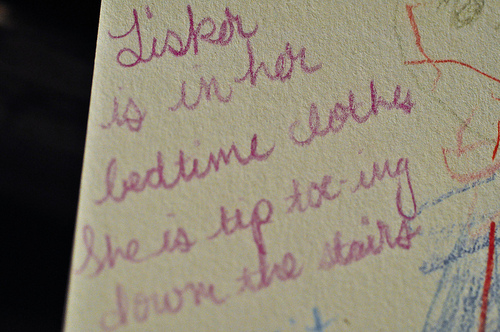 Lisker
is in her
bedtime clothes
She is tip toe-ing
down the stairs